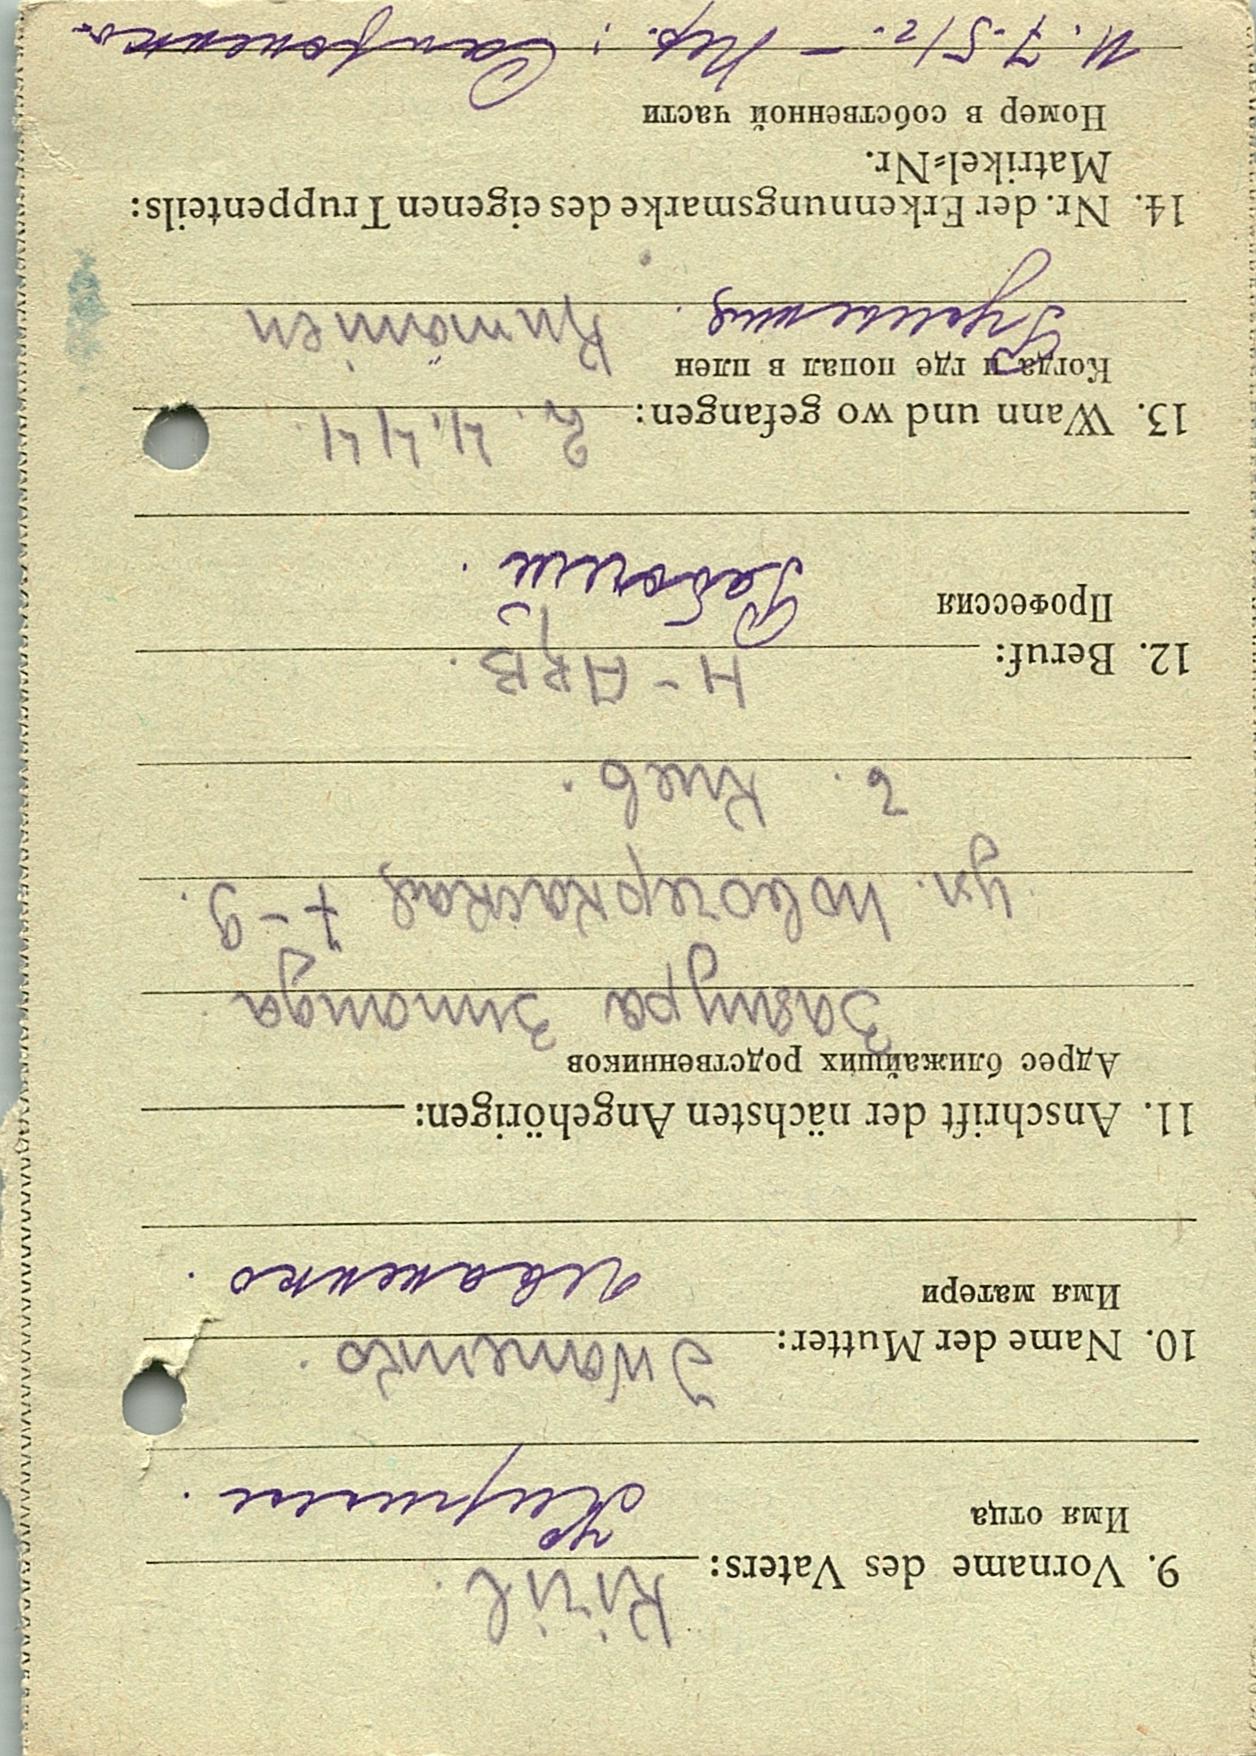 9. Vorname des Vaters: Kiril.
Имя отца
Кирилл.
10. Name der Mutter: Iwanenko.
Имя матери
Иваненко.
11. Anschrift der nächsten Angehörigen:
Адрес ближайших родственников
Зинаида
ул. Новочеркаская 7-9.
г. Киев.
12. Beruf: H-ARB.
Профессия
Рабочий.
13. Wann und wo gefangen: 2. 4.44.
Когда и где попал в плен
Rumänien
Румыния.
14. Nr. der Erkennungsmarke des eigenen Truppenteils:
Matrikel-Nr.
Номер в собственной части
11.7.51г. – Пер.: